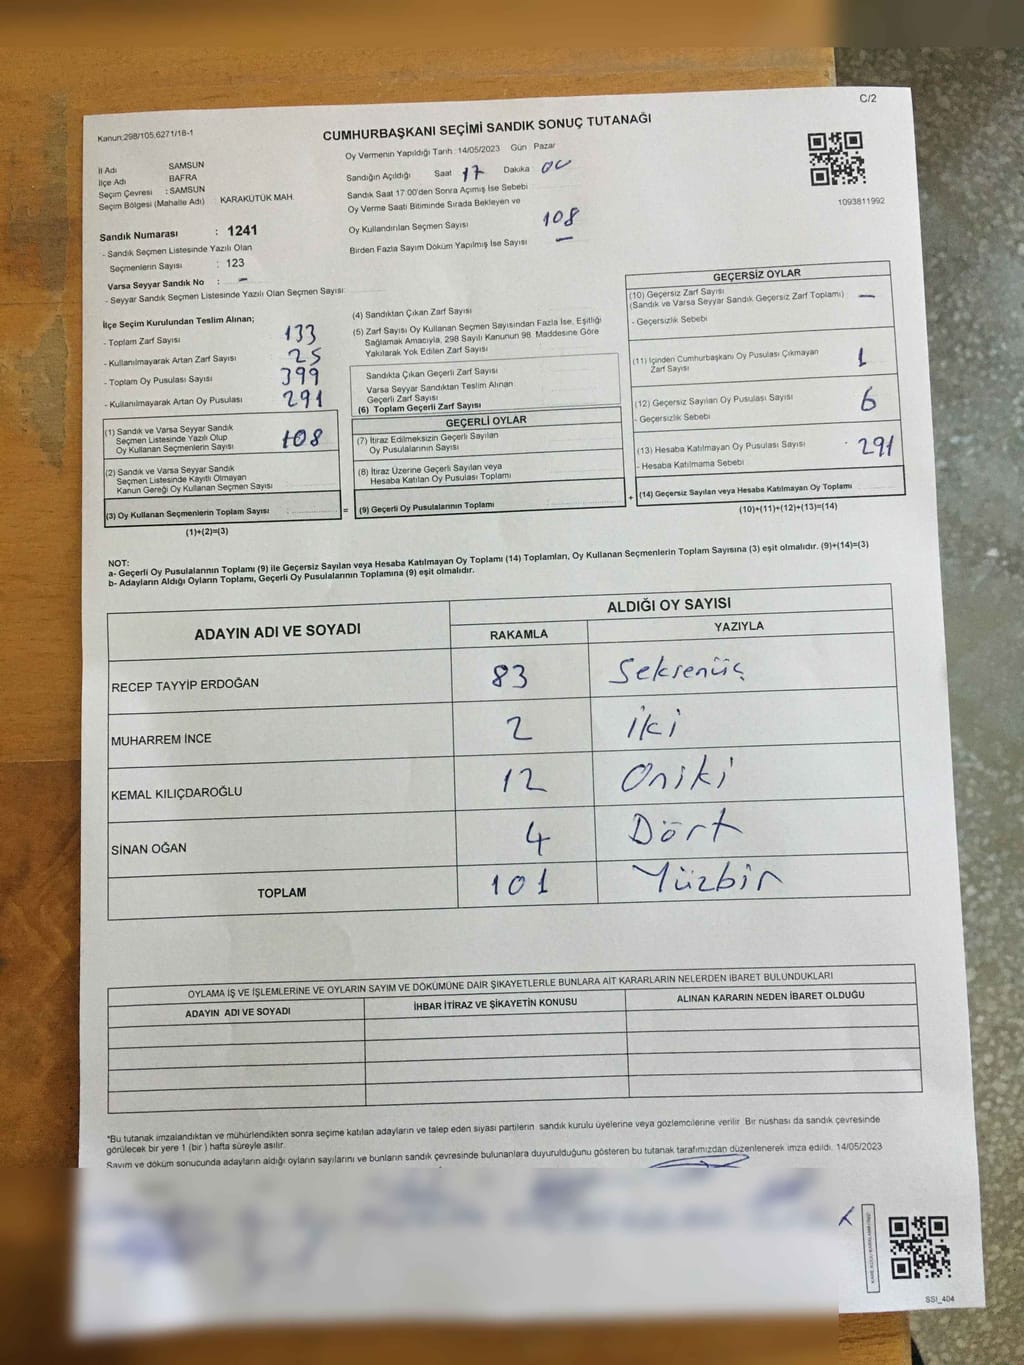 C/2
Kanun:298/105,6271/18-1
CUMHURBAŞKANI SEÇİMİ SANDIK SONUÇ TUTANAĞI
İl Adı SAMSUN
İlçe Adı BAFRA
Seçim Çevresi : SAMSUN
Seçim Bölgesi (Mahalle Adı) : KARAKÜTÜK MAH.
Oy Vermenin Yapıldığı Tarih :14/05/2023 Gün Pazar
Sandığın Açıldığı Saat 17 Dakika 00
Sandık Saat 17:00'den Sonra Açımış İse Sebebi
Oy Verme Saati Bitiminde Sırada Bekleyen ve
Oy Kullandırılan Seçmen Sayısı 108
Birden Fazla Sayım Döküm Yapılmış İse Sayısı —
1093811992
Sandık Numarası : 1241
- Sandık Seçmen Listesinde Yazılı Olan
Seçmenlerin Sayısı : 123
Varsa Seyyar Sandık No : —
- Seyyar Sandık Seçmen Listesinde Yazılı Olan Seçmen Sayısı:
İlçe Seçim Kurulundan Teslim Alınan;
- Toplam Zarf Sayısı 133
- Kullanılmayarak Artan Zarf Sayısı 25
- Toplam Oy Pusulası Sayısı 399
- Kullanılmayarak Artan Oy Pusulası 291
(1) Sandık ve Varsa Seyyar Sandık
Seçmen Listesinde Yazılı Olup
Oy Kullanan Seçmenlerin Sayısı 108
(2) Sandık ve Varsa Seyyar Sandık
Seçmen Listesinde Kayıtlı Olmayan
Kanun Gereği Oy Kullanan Seçmen Sayısı
(3) Oy Kullanan Seçmenlerin Toplam Sayısı =
(1)+(2)=(3)
(4) Sandıktan Çıkan Zarf Sayısı
(5) Zarf Sayısı Oy Kullanan Seçmen Sayısından Fazla İse, Eşitliği
Sağlamak Amacıyla, 298 Sayılı Kanunun 98. Maddesine Göre
Yakılarak Yok Edilen Zarf Sayısı
Sandıkta Çıkan Geçerli Zarf Sayısı
Varsa Seyyar Sandıktan Teslim Alınan
Geçerli Zarf Sayısı
(6) Toplam Geçerli Zarf Sayısı
GEÇERLİ OYLAR
(7) İtiraz Edilmeksizin Geçerli Sayılan
Oy Pusulalarının Sayısı
(8) İtiraz Üzerine Geçerli Sayılan veya
Hesaba Katılan Oy Pusulası Toplamı
(9) Geçerli Oy Pusulalarının Toplamı +
GEÇERSİZ OYLAR
(10) Geçersiz Zarf Sayısı
(Sandık ve Varsa Seyyar Sandık Geçersiz Zarf Toplamı) —
- Geçersizlik Sebebi
(11) İçinden Cumhurbaşkanı Oy Pusulası Çıkmayan
Zarf Sayısı 1
(12) Geçersiz Sayılan Oy Pusulası Sayısı 6
- Geçersizlik Sebebi
(13) Hesaba Katılmayan Oy Pusulası Sayısı 291
- Hesaba Katılmama Sebebi
(14) Geçersiz Sayılan veya Hesaba Katılmayan Oy Toplamı
(10)+(11)+(12)+(13)=(14)
NOT:
a- Geçerli Oy Pusulalarının Toplamı (9) ile Geçersiz Sayılan veya Hesaba Katılmayan Oy Toplamı (14) Toplamları, Oy Kullanan Seçmenlerin Toplam Sayısına (3) eşit olmalıdır. (9)+(14)=(3)
b- Adayların Aldığı Oyların Toplamı, Geçerli Oy Pusulalarının Toplamına (9) eşit olmalıdır.
ADAYIN ADI VE SOYADI
ALDIĞI OY SAYISI
RAKAMLA YAZIYLA
RECEP TAYYİP ERDOĞAN 83 Seksenüç
MUHARREM İNCE 2 İki
KEMAL KILIÇDAROĞLU 12 Oniki
SİNAN OĞAN 4 Dört
TOPLAM 101 Yüzbir
OYLAMA İŞ VE İŞLEMLERINE VE OYLARIN SAYIM VE DÖKÜMÜNE DAİR ŞIKAYETLERLE BUNLARA AİT KARARLARIN NELERDEN İBARET BULUNDUKLARI
ADAYIN ADI VE SOYADI İHBAR İTİRAZ VE ŞİKAYETİN KONUSU ALINAN KARARIN NEDEN İBARET OLDUĞU
*Bu tutanak imzalandıktan ve mühürlendikten sonra seçime katılan adayların ve talep eden siyasi partilerin sandık kurulu üyelerine veya gözlemcilerine verilir. Bir nüshası da sandık çevresinde
görülecek bir yere 1 (bir ) hafta süreyle asılır.
Sayım ve döküm sonucunda adayların aldığı oyların sayılarını ve bunların sandık çevresinde bulunanlara duyurulduğunu gösteren bu tutanak tarafımızdan düzenlenerek imza edildi. 14/05/2023
SSI_404